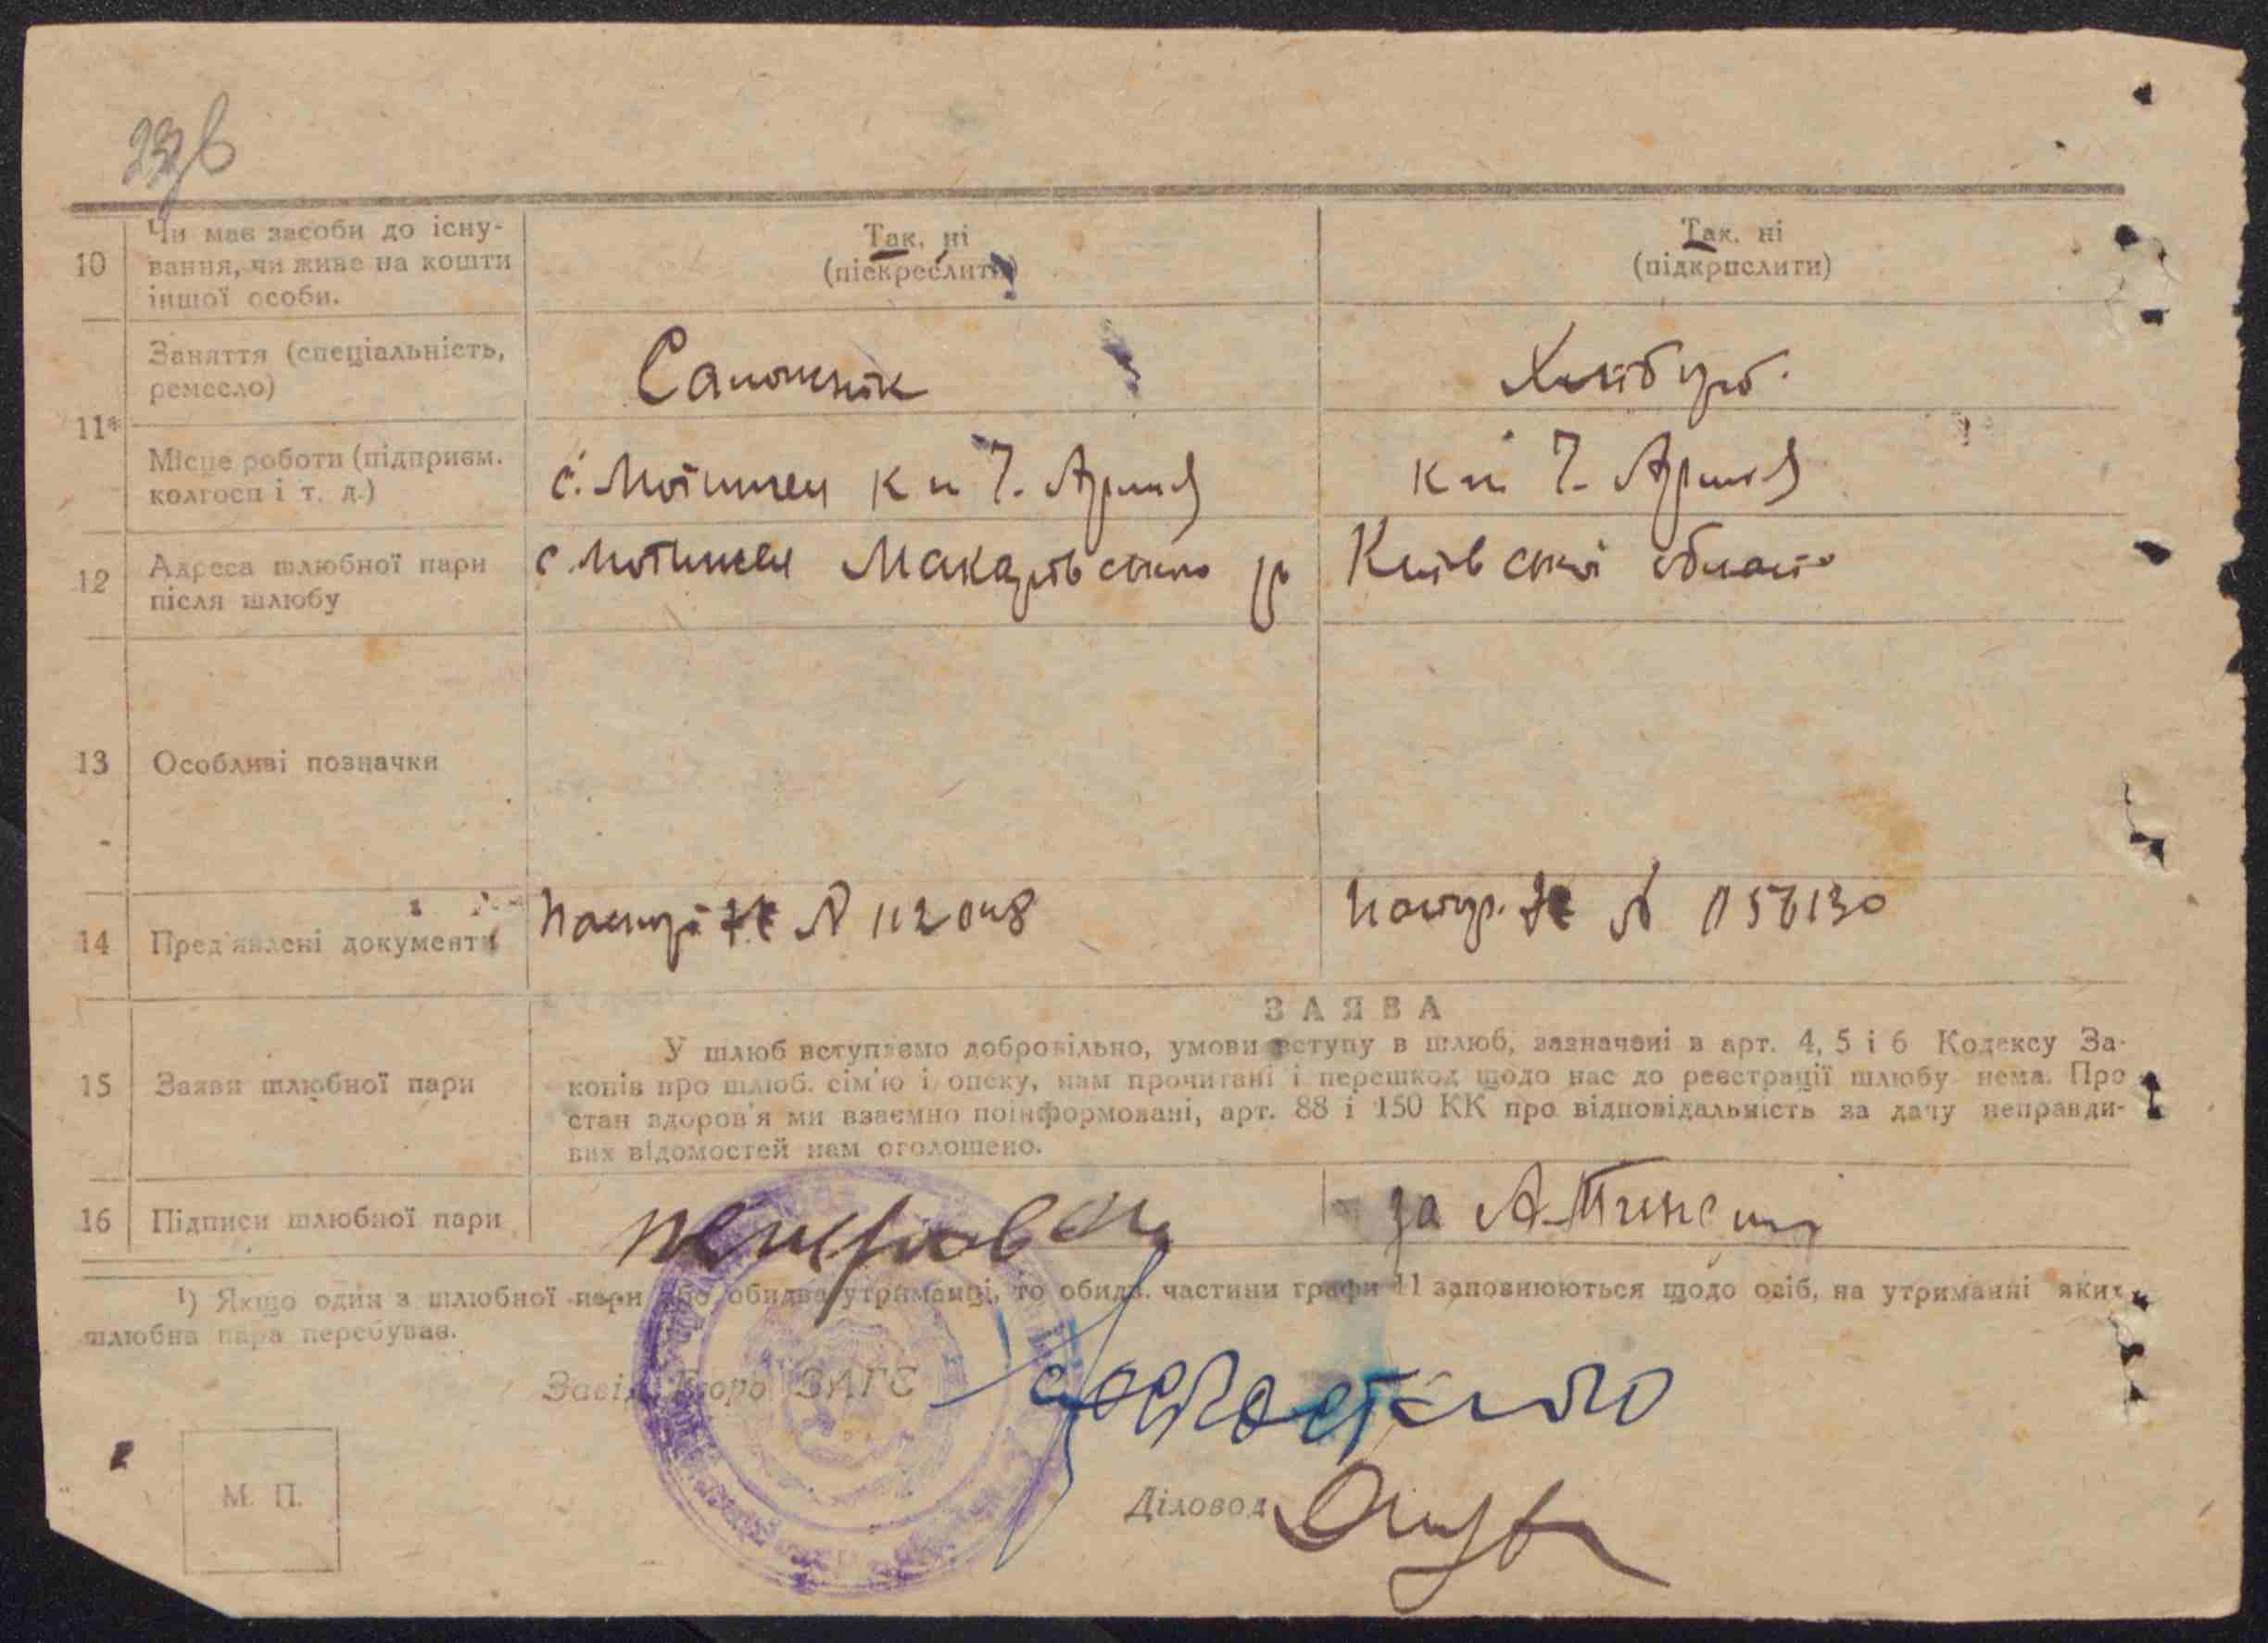 10
Чи має засоби до існу-
вання, чи живе на кошти
іншої особи.
Так, ні
(піскреслити)
Так, ні
(підкрпслити)
11*
Заняття (спеціальність,
ремесло)
Сапожнік
Хлібороб.
Місце роботи (підприєм.
колгосп і т. д.)
с. Мотижен к-п Ч. Армія
к-п Ч. Армія
12
Адреса шлюбної пари
після шлюбу
с. Мотижен Макарівського р
Київської області
13
Особливі позначки
14
Пред'явлені документи
Паспорт № 112048
Паспор. №
15
Заяви шлюбної пари
ЗАЯВА
У шлюб вступаємо добровільно, умови вступу в шлюб, зазначені в арт. 4, 5 і 6 Кодексу За-
конів про шлюб. сім'ю і опеку, нам прочитані і перешкод щодо нас до реєстрації шлюбу нема. Про
стан здоров'я ми взаємно поінформовані, арт. 88 і 150 КК про відповідальність за дачу неправди-
вих відомостей нам оголошено.
16
Підписи шлюбної пари
за
¹) Якщо один з шлюбної пари або обидва утриманці, то обидв. частини графи 11 заповнюються щодо осіб, на утриманні яких
шлюбна пара перебуває.
Завід. Бюро ЗАГС
М. П.
Діловод